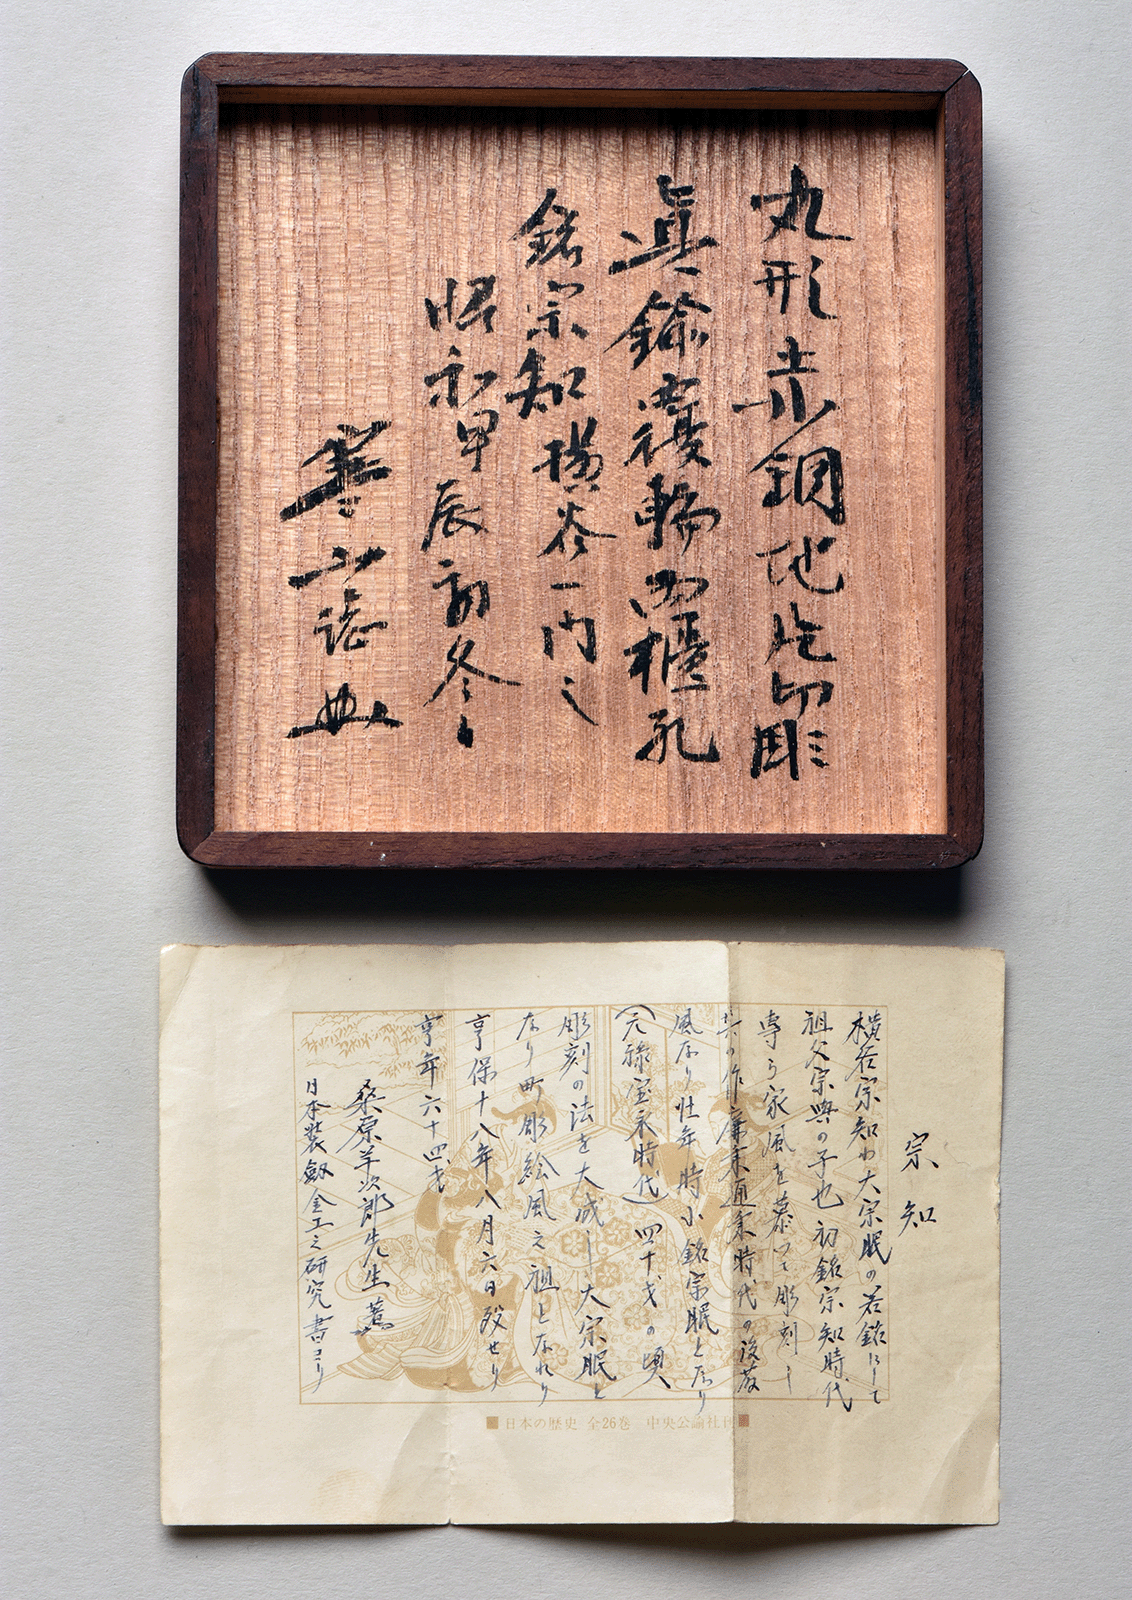 丸形赤銅地片切彫
真鍮覆輪両櫃孔
銘宗知横谷一内之
昭和甲辰初冬日
寒山誌
宗知
横谷宗知ハ大宗眠の若銘にして
祖父宗與の子也初銘宗知時代
専ら家風を慕つて彫刻し
其の作廉乗通乗時代の後藤
風なり壮年時小銘宗眠となり
(元禄宝永時代)四十才の頃
彫刻の法を大成し大宗眠と
なり町彫絵風之祖となれり
享保十八年八月六日歿せり
享年六十四才
桑原羊次郎先生著
日本装劔金工之研究書ヨリ
日本の歴史 全26巻 中央公論社刊